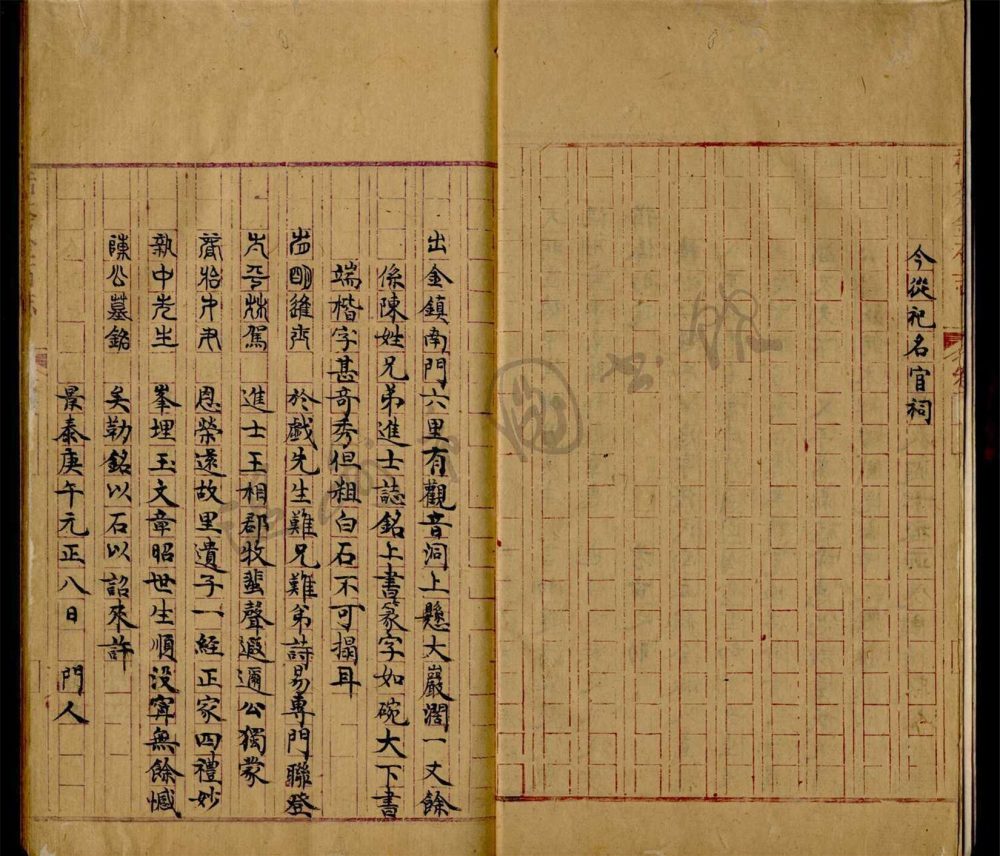 今從祀名宦祠
出金鎮南門六里有觀音洞上懸大巖濶一丈餘
係陳姓兄弟進士誌銘上書篆字如碗大下書
端楷字甚奇秀但粗白石不可搨耳
於戲先生難兄難弟詩易專門聯登
進士王相郡牧蜚聲遐邇公獨蒙
恩榮遠故里遺子一經正家四禮妙
執中先生 峯埋玉文章昭世生順没寧無餘憾
陳公墓銘 矣勒銘以石以詔來許
景泰庚午元正八日 門人